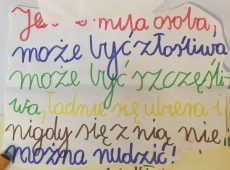 Jes miła osoba,
może być złośliwa
może być szczęśli
wa, ładnie się ubiera i
nigdy się z nią nie
można nudzić!